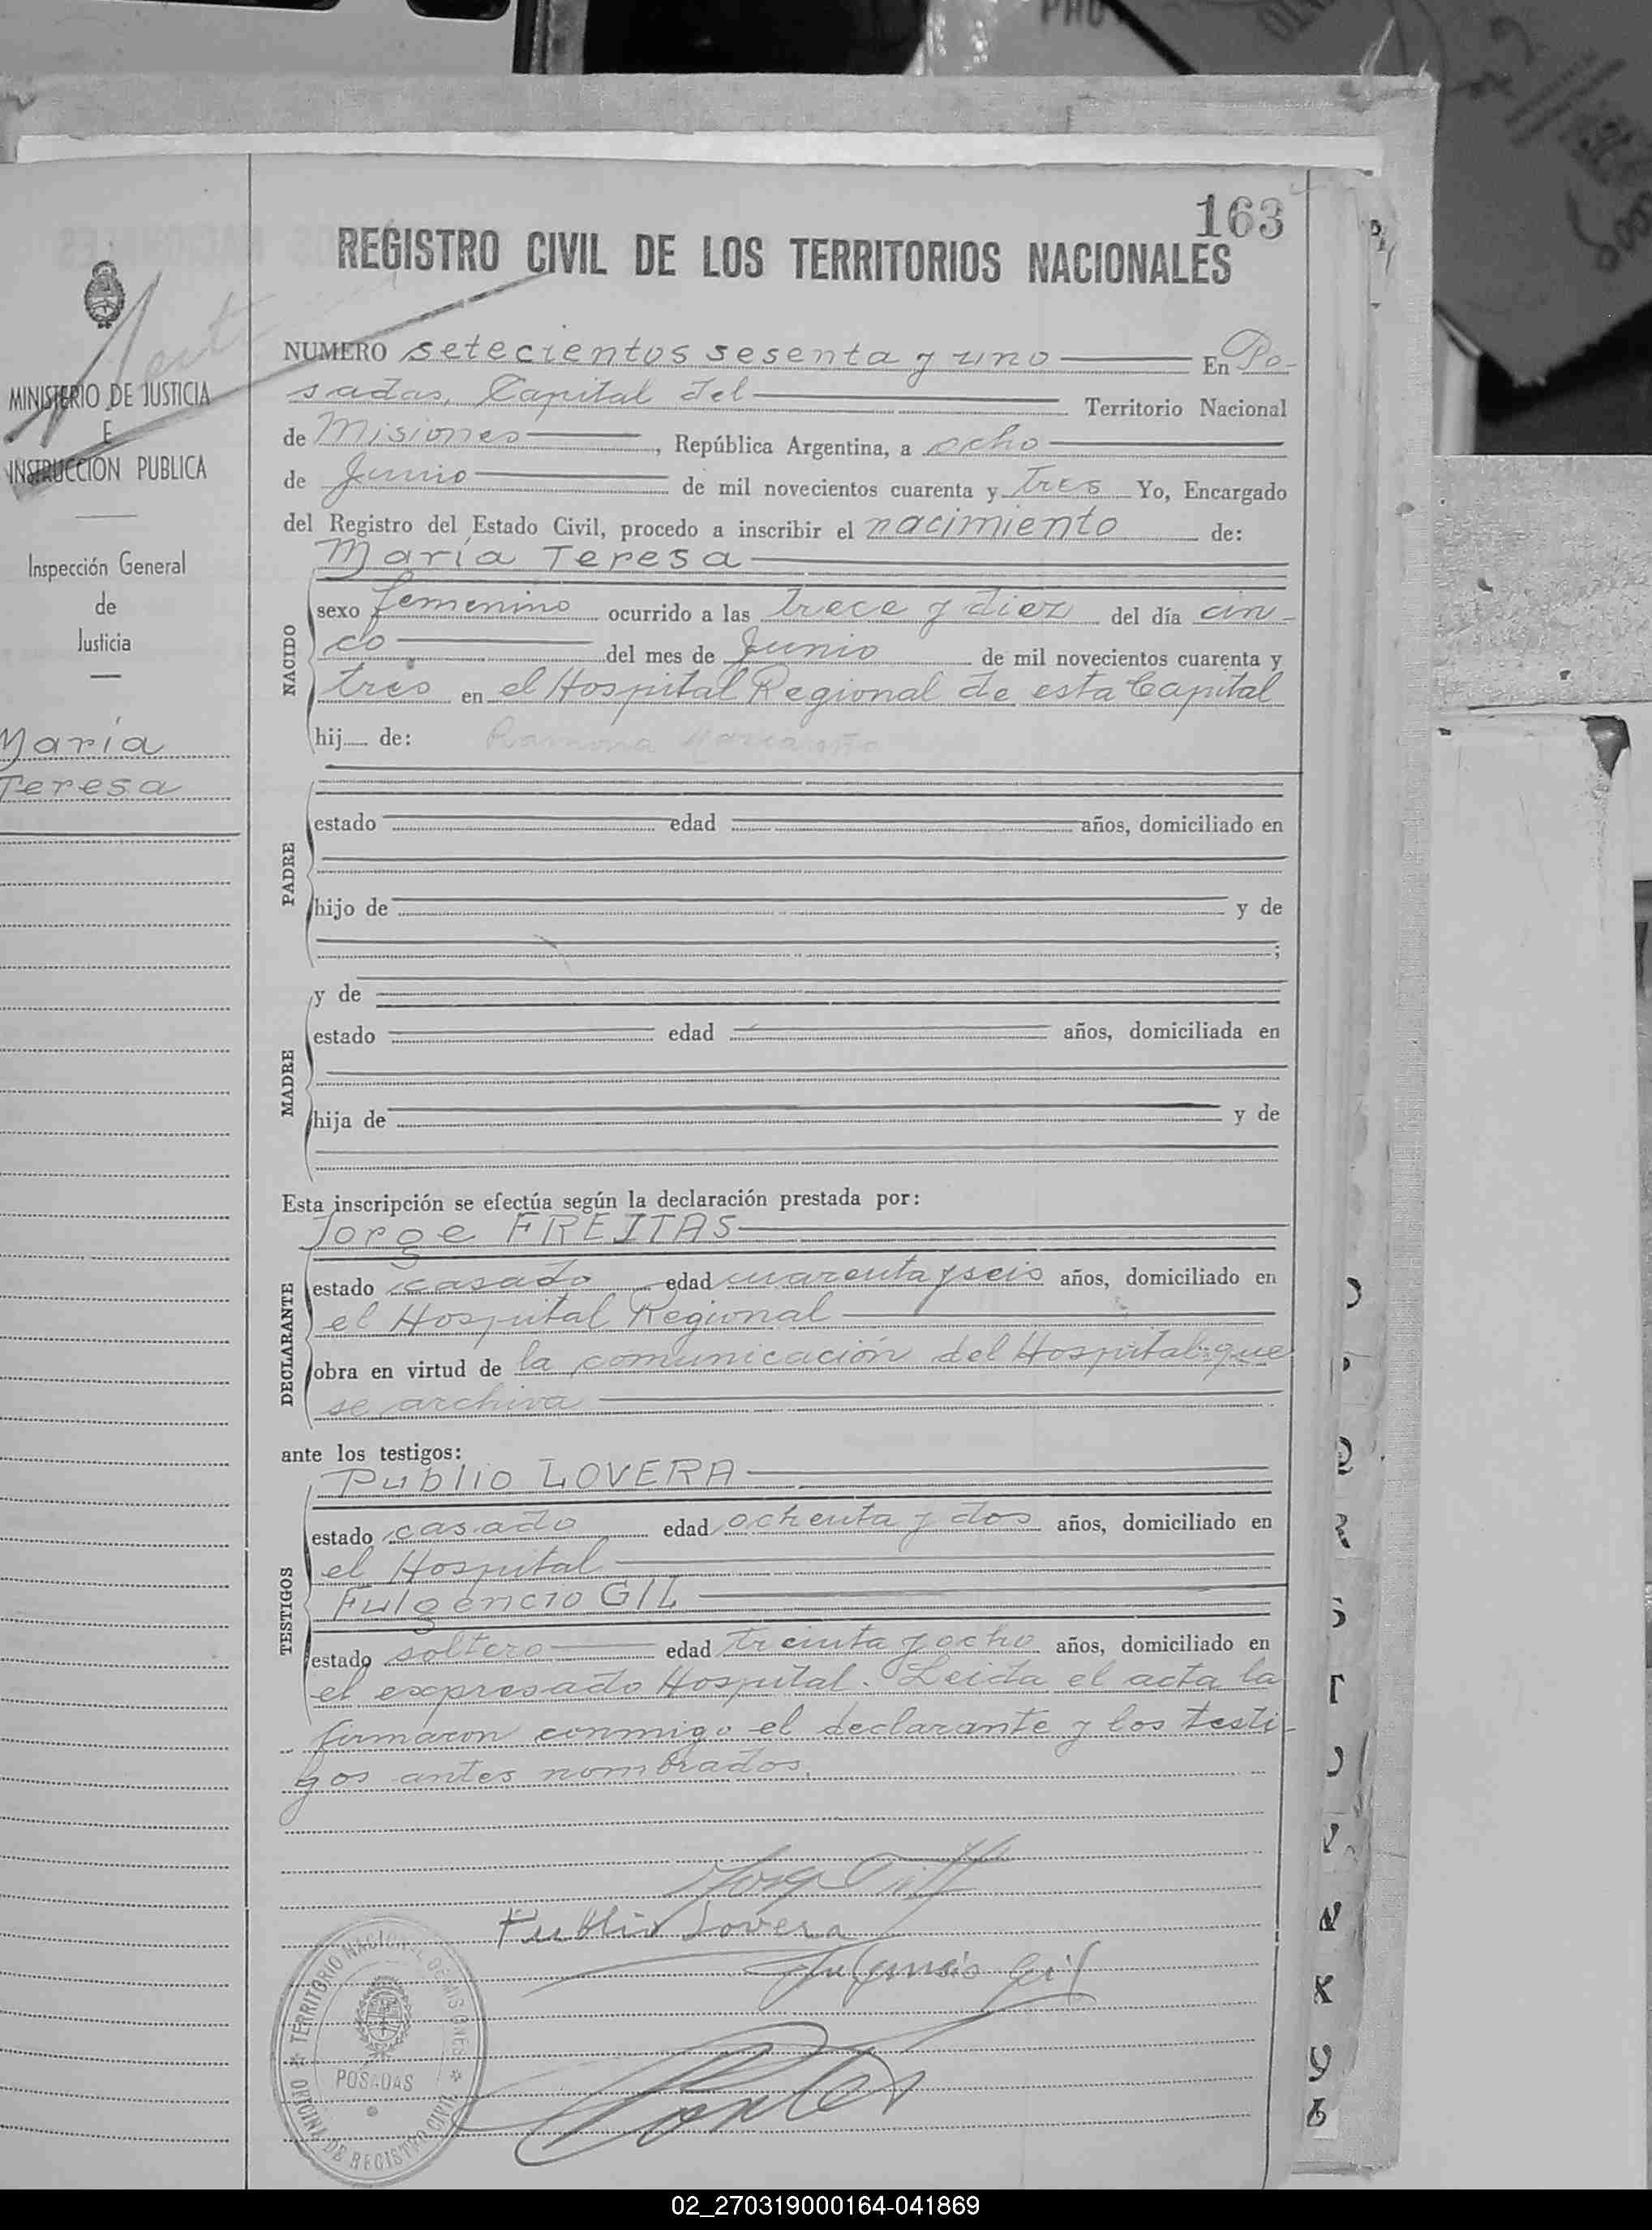 163
REGISTRO CIVIL DE LOS TERRITORIOS NACIONALES
MINISTERIO DE JUSTICIA
E
INSTRUCCION PUBLICA
Inspección General
de
Justicia
María
Teresa
NUMERO setecientos sesenta y uno En Po-
sadas, Capital del Territorio Nacional
de Misiones, República Argentina, a ocho
de Junio de mil novecientos cuarenta y tres Yo, Encargado
del Registro del Estado Civil, procedo a inscribir el nacimiento de:
María Teresa
NACIDO
sexo femenino ocurrido a las trece y diez del día cin-
co del mes de Junio de mil novecientos cuarenta y
tres en el Hospital Regional de esta Capital
hij de: Ramona
PADRE
estado edad años, domiciliado en
hijo de y de
;
MADRE
y de
estado edad años, domiciliada en
hija de y de
Esta inscripción se efectúa según la declaración prestada por:
Jorge FREITAS
DECLARANTE
estado casado edad cuarenta y seis años, domiciliado en
el Hospital Regional
obra en virtud de la comunicación del Hospital que
se archiva
ante los testigos:
Publio LOVERA
TESTIGOS
estado casado edad ochenta y dos años, domiciliado en
el Hospital
Fulgencio GIL
estado soltero edad treinta y ocho años, domiciliado en
el expresado Hospital. Leida el acta la
firmaron conmigo el declarante y los testi-
gos antes nombrados.
Publio Lovera
Fulgencio Gil
TERRITORIO NACIONAL DE MISIONES
POSADAS
OFICINA DE REGISTRO CIVIL
02_270319000164-041869